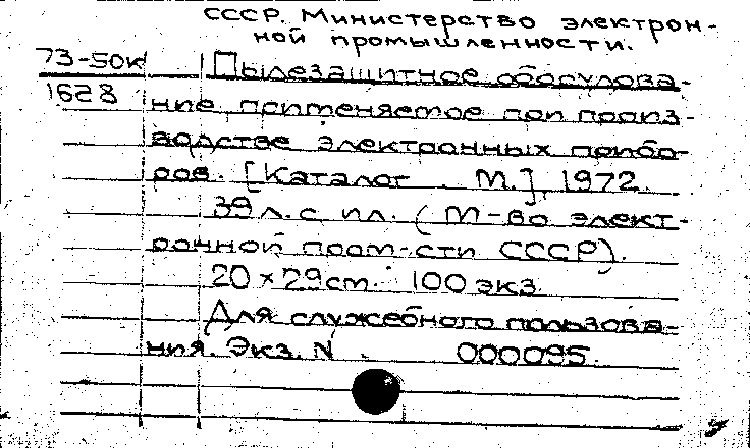 СССР. Министерство электрон-
ной промышленности.
73-50К Пылезащитное оборудова-
1628 ние, применяемое при произ-
водстве электронных прибо-
ров. [Каталог. М.], 1972.
39 л. с ил. (М-во элект-
ронной пром-сти СССР).
20 × 29 cm. 100 экз.
Для служебного пользова-
ния. Экз. N 000095.